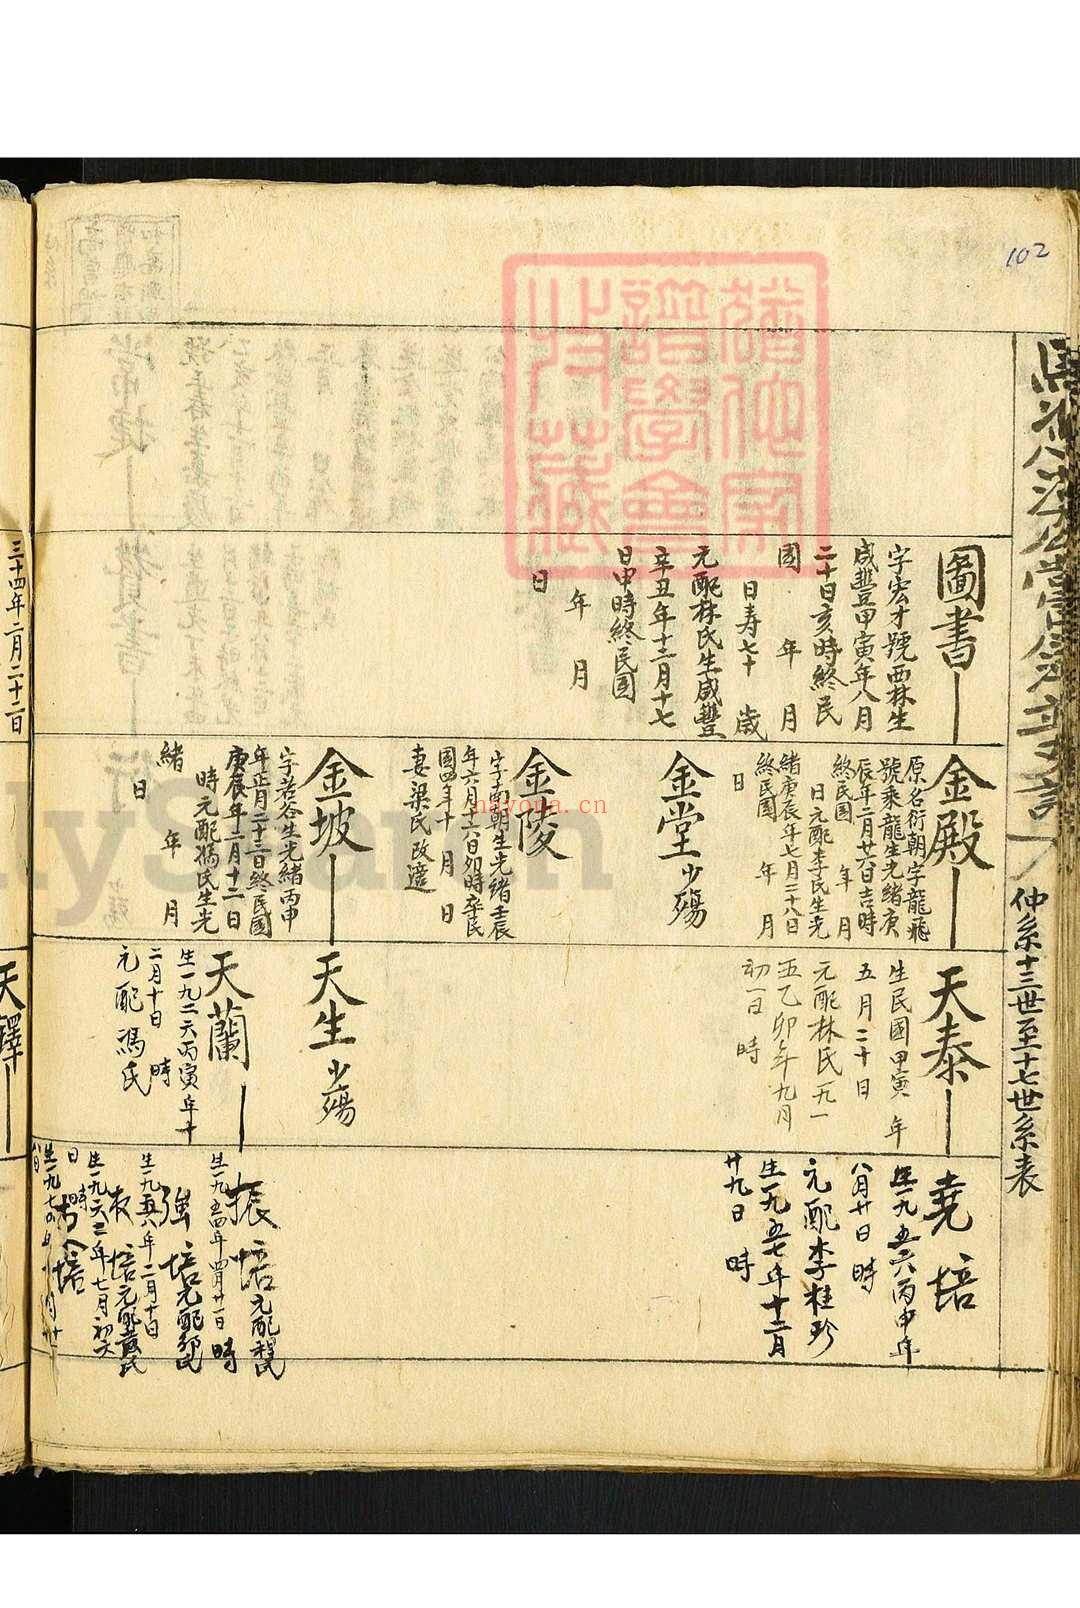 102
仲系十三世至十七世系表
圖書
字宏才號西林生
咸豐甲寅年八月
二十日亥時終民
國 年 月
日寿七十 歲
元配林氏生咸豐
辛丑年十二月十七
日申時終民国
年 月
日
金殿
原名衍朝字龍飛
號乘龍生光緒庚
辰年二月廿六日吉時
終民國 年 月
日元配李氏生光
緒庚辰年七月二十八日
終民国 年 月
日
金堂少殤
金陵
字南朝生光緒壬辰
年六月十六日卯時卒民
國四年十 月 日
妻梁氏改適
金坡
字若谷生光緒丙申
年正月二十三日終民國
庚辰年二月十二日
時元配馮氏生光
緒 年 月
日
天泰
生民國甲寅 年
五月二十日
元配林氏一九一
五乙卯年九月
初一日 時
天生少殤
天蘭
生一九二六丙寅年十
二月十日 時
元配馮氏
堯培
生一九五六丙申年
八月廿日 時
元配李桂珍
生一九五七年十二月
廿九日 時
振培元配 氏
生一九五四年四月廿一日 時
強培元配 氏
生一九五八年二月十日
培元配黃氏
生一九六二年七月初六
日 時
培
生一九七 年
三十四年二月二十二日
天鐸
譜學會
藏
nayona.cn